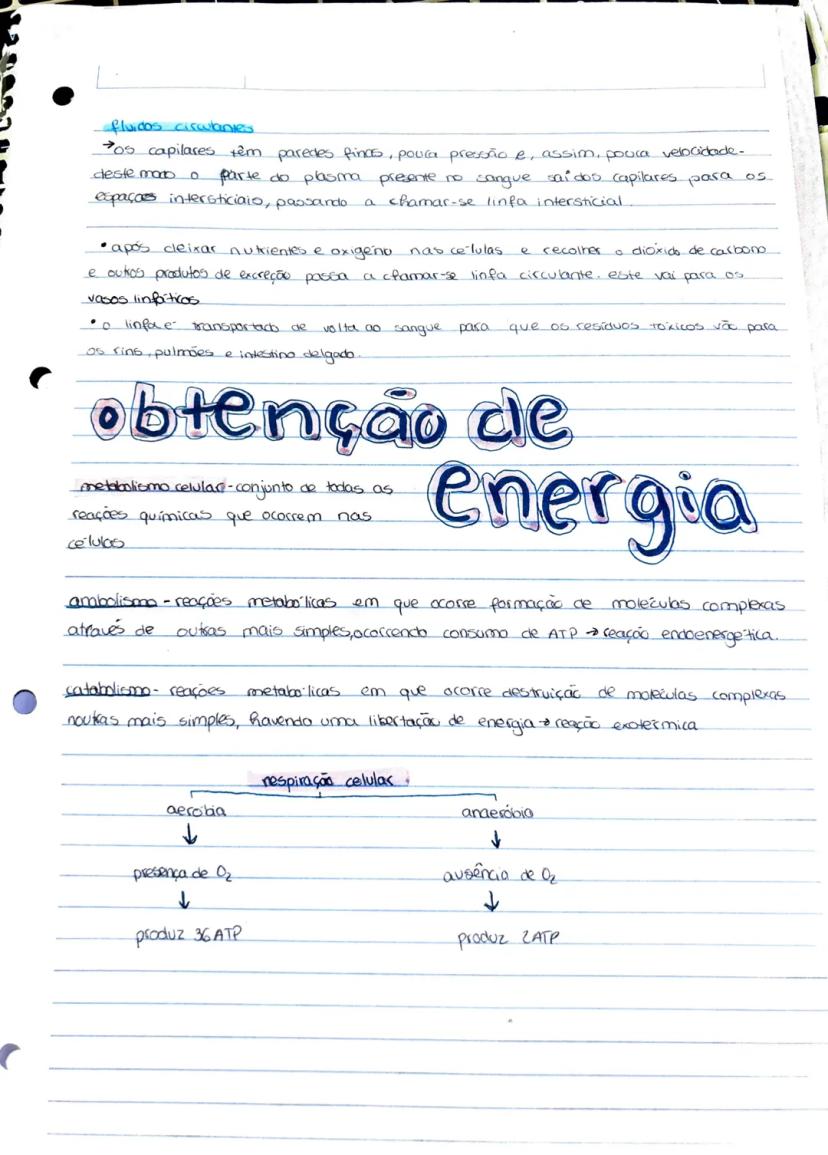 fluidos circulantes
→os capilares têm paredes finas, pouca pressão e, assim, pouca velocidade.
deste modo o parte do plasma presente no sangue sai dos capilares para os
espaços intersticiais, passando a chamar-se linfa intersticial.
•após deixar nutrientes e oxigénio nas células e recolher o dióxido de carbono
e outros produtos de excreção passa a chamar-se linfa circulante. este vai para os
vasos linfáticos
•o linfa é transportado de volta ao sangue para que os resíduos tóxicos vão para
os rins, pulmões e intestino delgado.
obtenção de
energia
metabolismo celular-conjunto de todas as
reações químicas que ocorrem nas
células
anabolismo - reações metabólicas em que ocorre formação de moléculas complexas
através de outras mais simples, ocorrendo consumo de ATP → reação endoenergética.
catabolismo - reações metabólicas em que ocorre destruição de moléculas complexas
noutras mais simples, havendo uma libertação de energia → reação exotérmica
respiração celular
aeróbia anaeróbia
↓ ↓
presença de O₂ ausência de O₂
↓ ↓
produz 36 ATP produz 2ATP